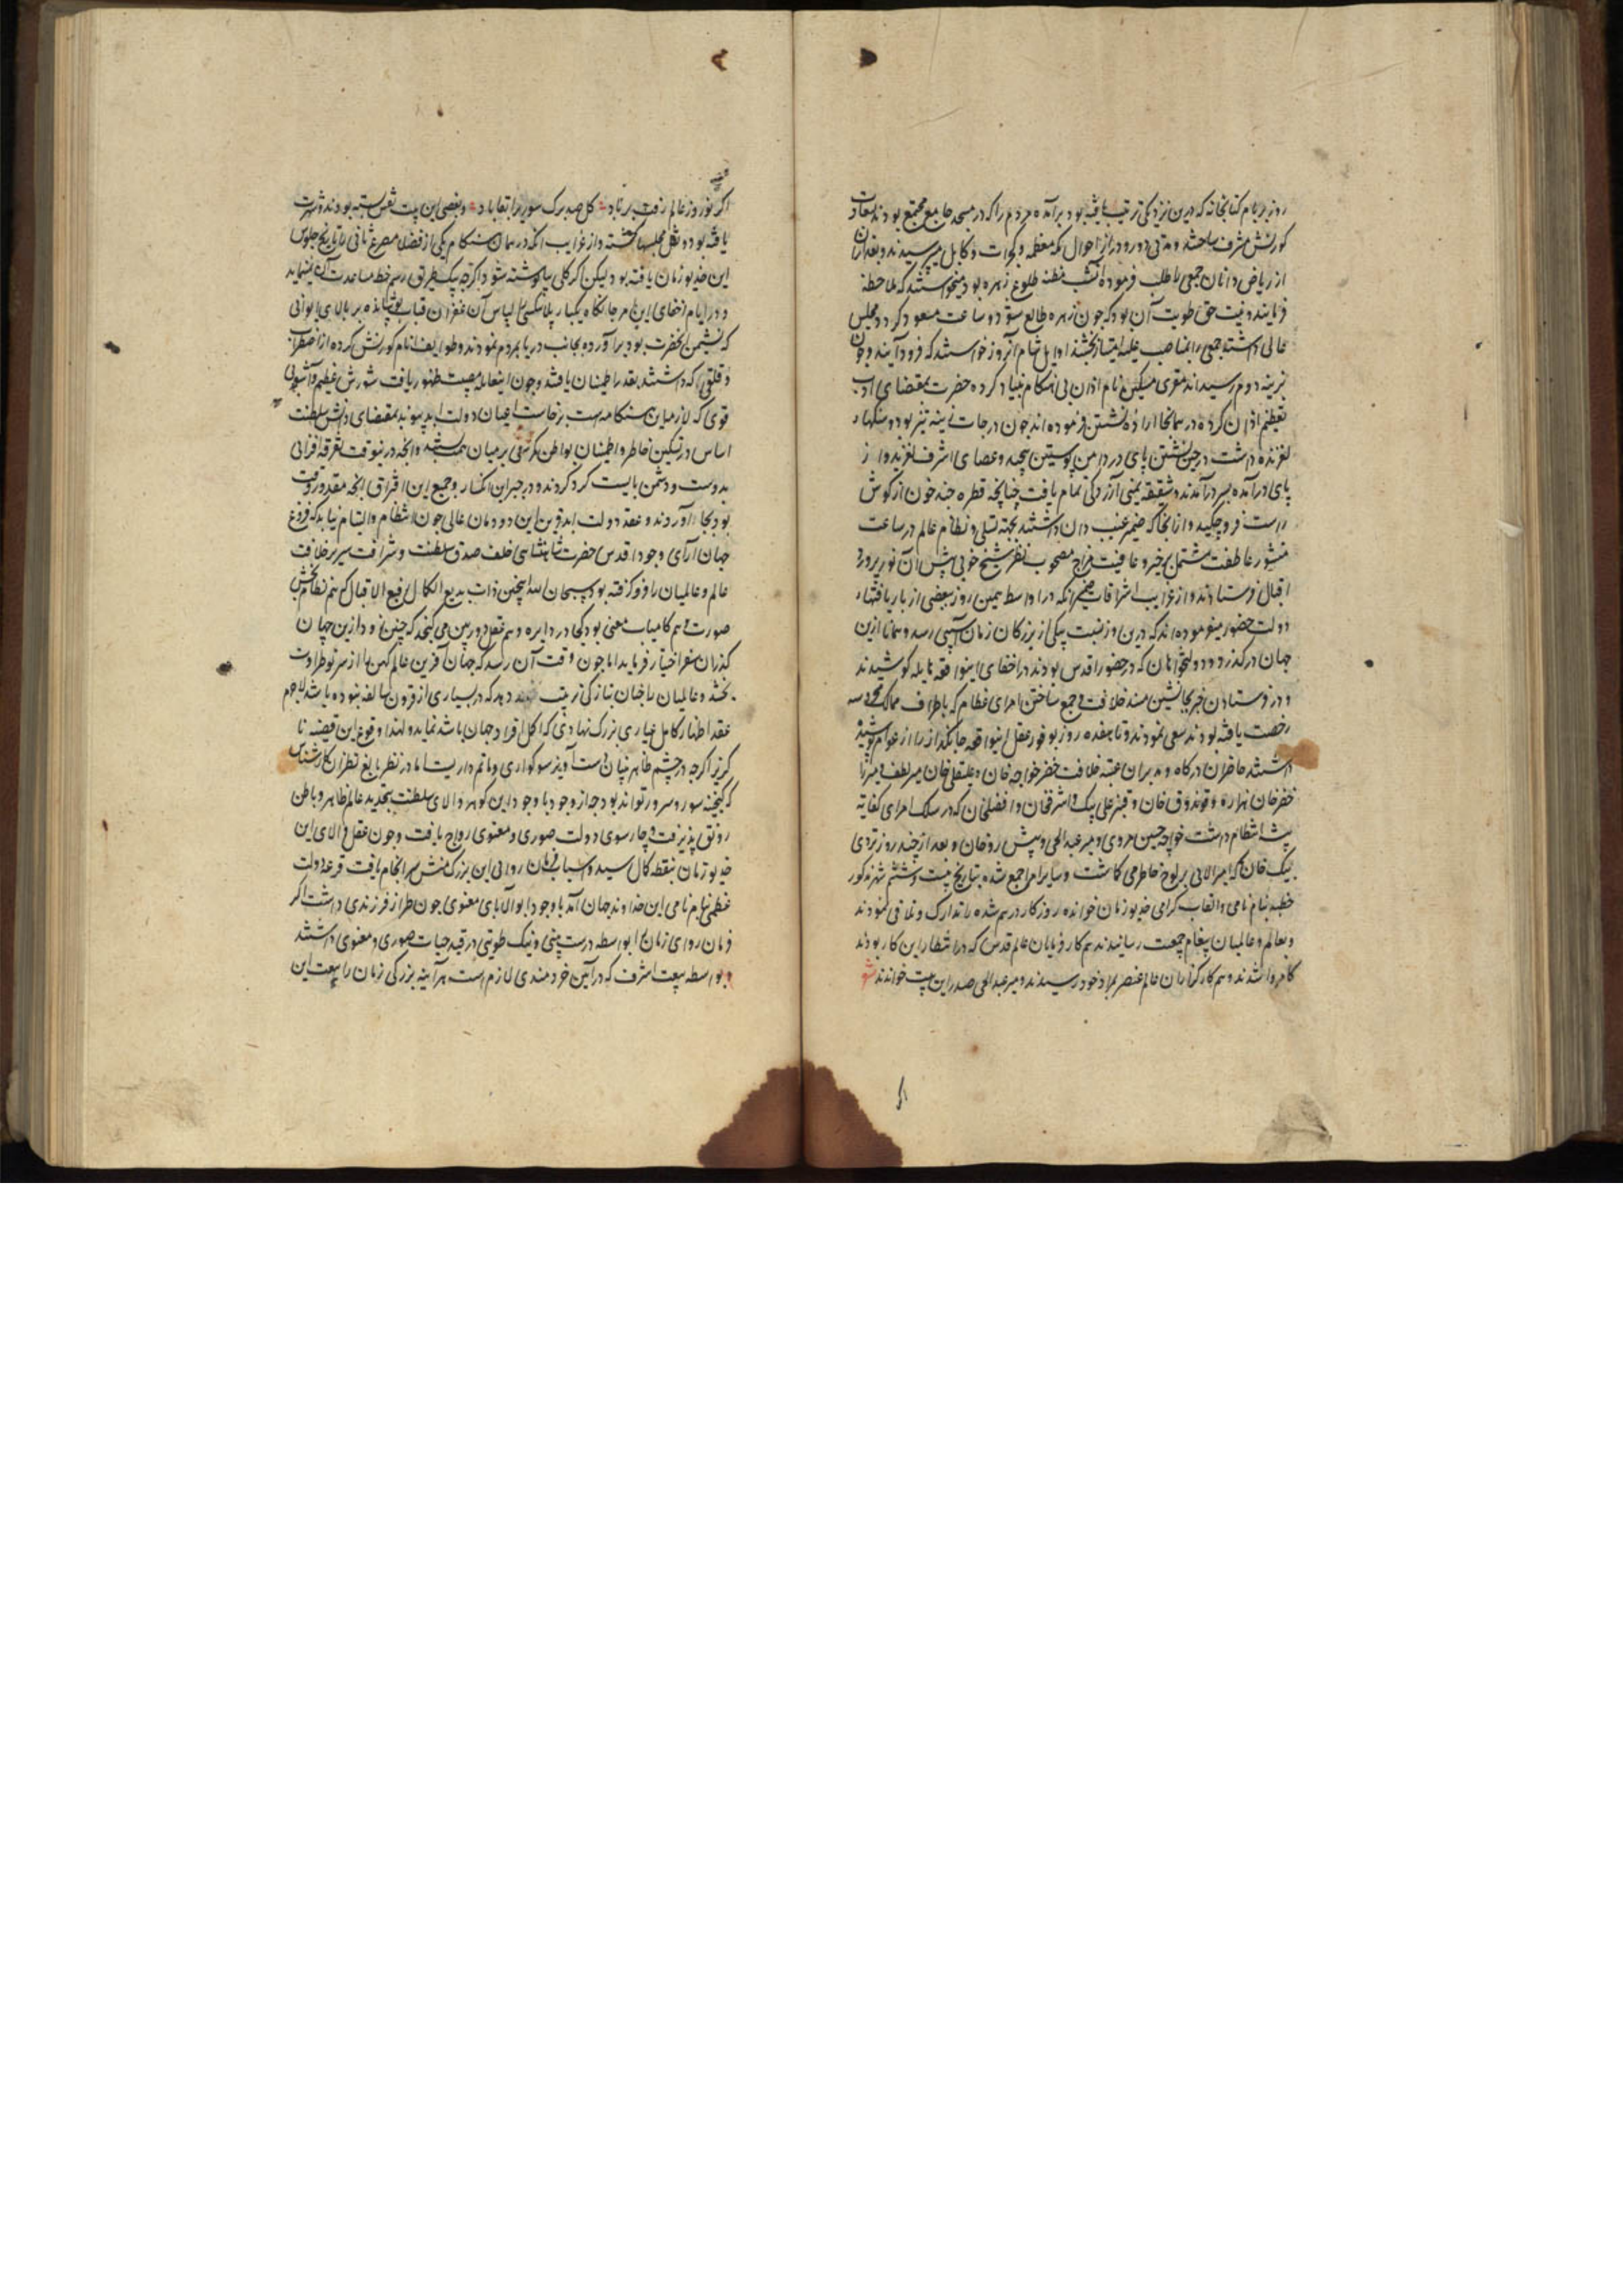 روز بر بام کتابخانه که درین نزدیکی ترتیب یافته بود برآمده مردم را که در مسجد جامع مجتمع بودند سعادت
کورنش مشرف ساختند و مدتی دور و دراز از احوال مکه معظمه و کجرات و کابل میپرسیدند و بعد ازان
از ریاضی دانان جمعی را طلب فرمودند آن شب مظنه طلوع زهره بود و میخواستند که ملاحظه
فرمایند و نیت حق طویت آن بود که چون زهره طالع شود و ساعت مسعود کردد مجلس
عالی داشته جمعی را بمناصب علیه امتیاز بخشند اوایل شام آنروز خواستند که فرود آیند و چون
بزینه دوم رسیدند مقری مسکین نام اذان بی هنکام بنیاد کرده حضرت بمقتضای ادب
تعظیم اذان کرده در همانجا اراده نشستن فرموده اند چون درجات زینه تیز بود و سنکها
لغزنده داشت در حین نشستن پای در دامن پوستین پیچید و عصای اشرف لغزید و از
پای درآمده بسر درآمدند و شقیقه یمنی آزردکی تمام یافت چنانچه قطره چند خون از کوش
راست فرو چکید و از انجا که ضمیر غیب دان داشتند بجهة تسلی و نظام عالم در ساعت
منشور عاطفت مشتمل بر خیر و عافیت مزاج مصحوب نظر شیخ چولی پیش آن نور پرورد
اقبال فرستادند و از غرایب اشراقات ضمیر آنکه در اواسط همین روز ببعضی از باریافتهای
دولت حضور میفرموده اند که درین روز نسبت بیکی از بزرکان زمان آسیبی رسد و همانا ازین
جهان درکذرد و دولتخواهان که در حضور اقدس بودند در اخفای اینواقعه هایله کوشیدند
و در فرستادن خبر بجانشین مسند خلافت و جمع ساختن امرای عظام که باطراف ممالک محروسه
رخصت یافته بودند سعی نمودند و تا هفده روز بوفور عقل اینواقعه جانکداز را از عوام پوشیده
داشتند حاضران درکاه و مدبران عتبه خلافت خضر خواجه خان و علیقلی خان میر لطف میرزا
خضرخان هزاره و قوندوق خان و قنبر علی بیک و اشرفخان و افضلخان که در سلک امرای کفایت
پیشه انتظام داشت خواجه حسین مروی و میر عبدالحی و پیش روخان و بعد از چند روز تردی
بیک خان که امیرالامرایی بر لوح خاطر می کاشت و سایر امرا جمع شده بتاریخ بیست و هشتم شهر مذکور
خطبه بنام نامی و القاب کرامی خدیو زمان خوانده روزکار درهم شده را تدارک و تلافی نمودند
و بعالم و عالمیان پیغام جمعیت رسانیدند هم کارفرمایان عالم قدس که در انتظار این کار بودند
کامروا شدند و هم کارکزاران عالم عنصر بمراد خود رسیدند و میر عبدالحی صدر این بیت خواندند شعر
اکر نوروز عالم رفت بر باد کل صد برک سوری را بقا باد و بعضی این بیت نقش بسته بودند و شهرت
یافته بود و نقل مجلسها کشته و از غرایب آنکه در همان هنکام یکی از فضلا مصرع ثانی را تاریخ جلوس
این خدیو زمان یافته بود لیکن اکر کلی بیا نوشته شود اکرچه بیک طریق رسم خط مساعدت آن مینماید
و در ایام اخفای این امر جانکاه یکبار ملا بیکسی را لباس آن غفران قباب پوشانیده بر بالای ایوانی
که نشیمن آنحضرت بود برآورده بجانب دریا بمردم نمودند و طوایف انام کورنش کرده از اضطراب
و قلقی که داشتند بقدر اطمینان یافتند و چون اینمعامله مصیبت ظهور یافت شورش عظیم و آشوبی
قوی که از میان هنکامه است برخاست اعیان دولت ابد پیوند بمقتضای دانش سلطنت
اساس در تسکین خاطر و اطمینان بواطن کمر سعی بر میان همت بستند و آنچه درینوقت تفرقه افزای
بدوست و دشمن بایست کرد کردند و در جبر این انکسار و جمع این افتراق آنچه مقدور وقت
بود بجا آوردند و عقد دولت ابد قرین این دودمان عالی چون انتظام و التیام نیابد که فروغ
جهان آرای وجود اقدس حضرت شاهنشاهی خلف صدق سلطنت و شرافت سریر خلافت
عالم و عالمیان را فرو کرفته بود سبحان الله اینچنین ذات بدیع الکمال رفیع الاقبال که هم نظام بخش
صورت و هم کامیاب معنی بود کی در دایره وهم عقل دوربین می کنجد که چنین زود ازین جهان
کذران سفر اختیار فرماید اما چون وقت آن رسد که جهان آفرین عالم کهن را از سر نو طراوت
بخشد و عالمیان را چنان تازکی تربیت دهد که در بسیاری از قرون سالفه نبوده باشد لاجرم
عقد اظهار کامل عیاری بزرک نهادی که اکمل افراد جهان باشد نماید و لهذا وقوع این قضیه نا
کزیر اکرچه در چشم ظاهر بینان دست آویز سوکواری و ماتم داریست اما در نظر بالغ نظران کارشناس
که کنجینه سور و سرور تواند بود چه از وجود با وجود این کوهر والای سلطنت بتجدید عالم ظاهر و باطن
رونق پذیرفت و چارسوی دولت صوری و معنوی رواج یافت و چون عقل والای این
خدیو زمان بنقطه کمال رسید و اسباب فرمان روایی این بزرک منش سرانجام یافت قرعه دولت
عظمی بنام نامی این خداوند جهان آمد با وجود ابوالآبای معنوی چون طراز فرزندی داشت اکر
فرمان روای زمان را بواسطه درست بینی و نیک طویتی در قید حیات صوری و معنوی داشتند
و بواسطه بیعت اشرف که در آیین خردمندی لازم است هرآینه بزرکی زمان را ببیعت این